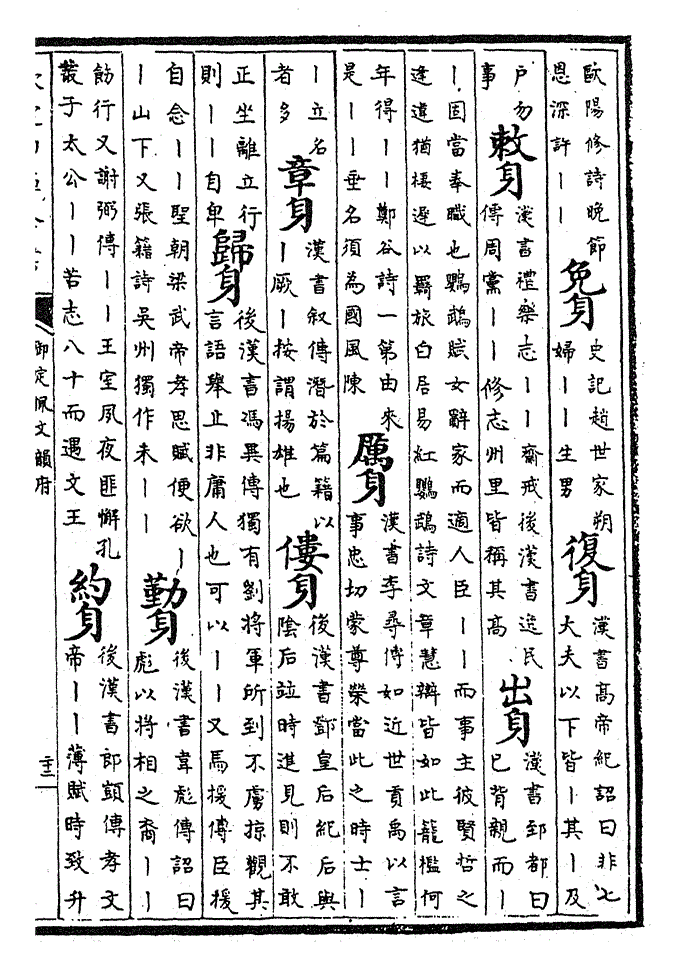 歐陽修詩晚節
恩深許丨丨
免身
史記趙世家朔
婦丨丨生男
復身
漢書髙帝紀詔曰非七
大夫以下皆丨其丨及
户勿
事
敕身
漢書禮樂志丨丨齋戒後漢書逸民
傳周黨丨丨修志州里皆稱其髙
出身
漢書郅都曰
已背親而丨
丨固當奉職也鸚鵡賦女辭家而適人臣丨丨而事主彼賢哲之
逢違猶棲遲以羇旅白居易紅鸚鵡詩文章慧辯皆如此籠檻何
年得丨丨鄭谷詩一第由來
是丨丨垂名須為國風陳
厲身
漢書李尋傳如近世貢禹以言
事忠切蒙尊榮當此之時士丨
丨立名
者多
章身
漢書叙傳潛於篇籍以
丨厥丨按謂揚雄也
僂身
後漢書鄧皇后紀后與
陰后竝時進見則不敢
正坐離立行
則丨丨自卑
歸身
後漢書馮異傳獨有劉將軍所到不虜掠觀其
言語舉止非庸人也可以丨丨又馬援傳臣援
自念丨丨聖朝梁武帝孝思賦便欲丨
丨山下又張籍詩吳州獨作未丨丨
勤身
後漢書韋彪傳詔曰
彪以將相之裔丨丨
飭行又謝弼傳丨丨王室夙夜匪懈孔
叢子太公丨丨苦志八十而遇文王
約身
後漢書郎顗傳孝文
帝丨丨薄賦時致升
御定佩文韻府